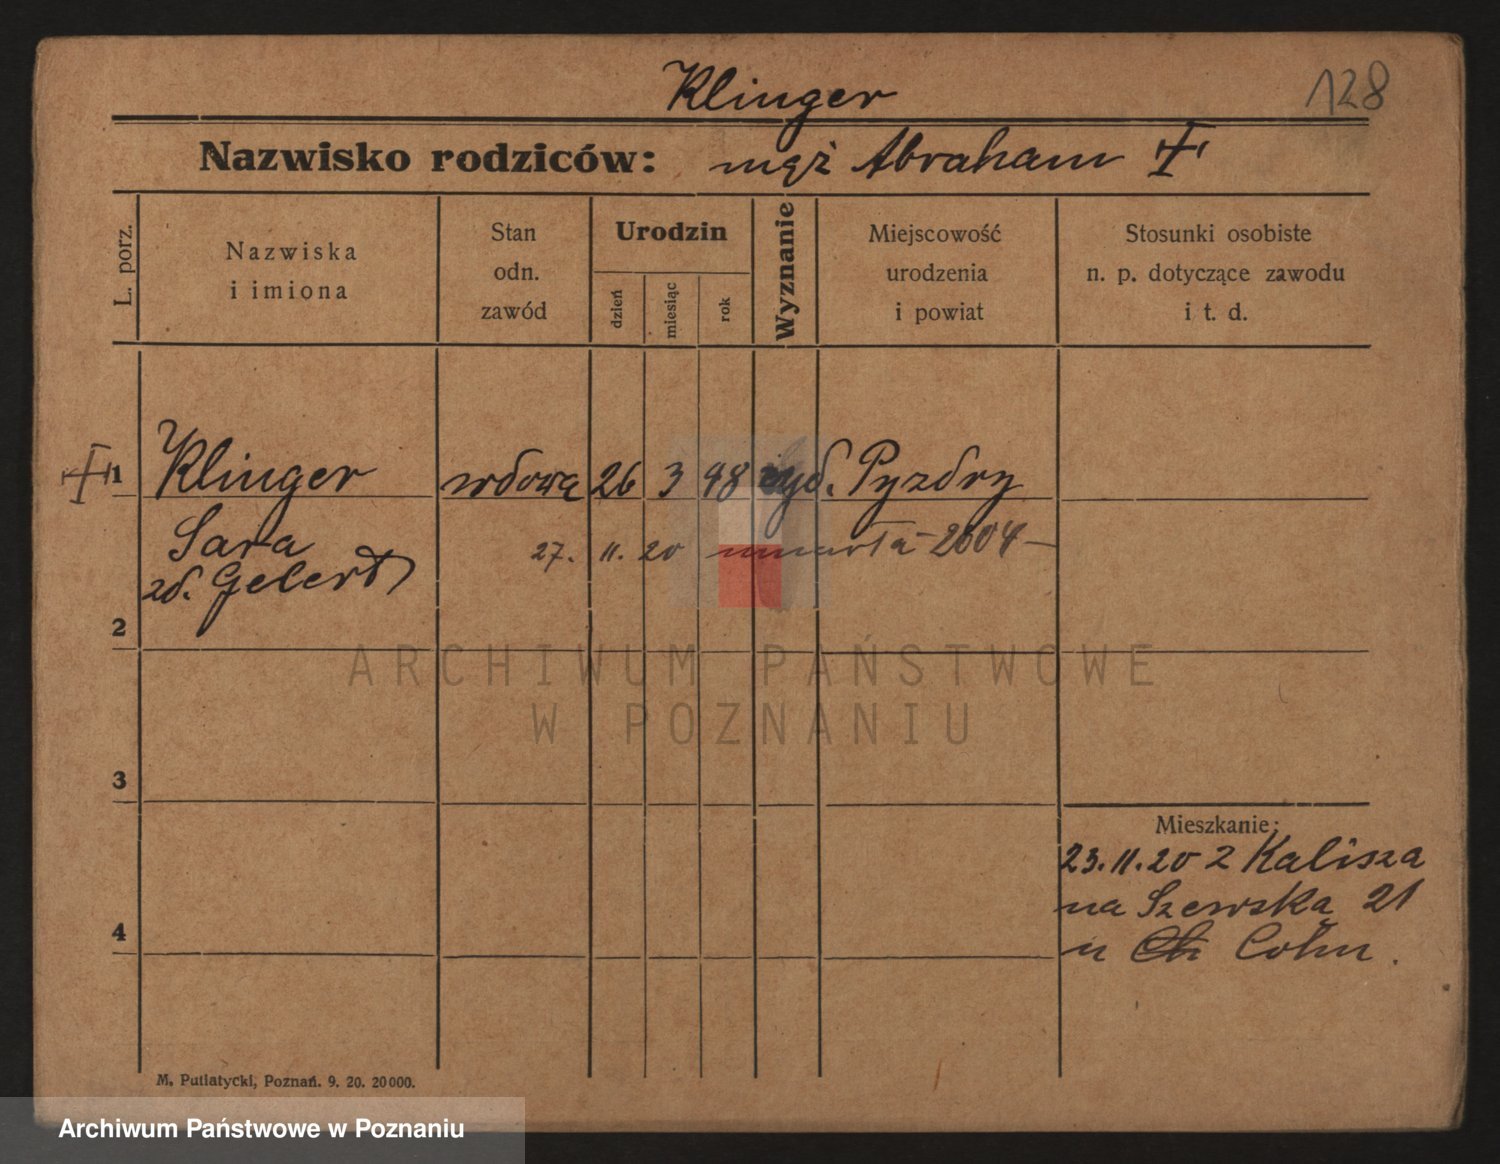 Klinger
128
Nazwisko rodziców: mąż Abraham
L. porz.
Nazwiska
i imiona
Stan
odn.
zawód
Urodzin
dzień
miesiąc
rok
Wyznanie
Miejscowość
urodzenia
i powiat
Stosunki osobiste
n. p. dotyczące zawodu
i t. d.
1 Klinger wdowa 26 3 48 żyd. Pyzdry
Sara
27. 11. 20 umarła - 2604 -
zd. Gelert
2
ARCHIWUM PAŃSTWOWE
W POZNANIU
3
Mieszkanie:
23.11.20 z Kalisza
na Szewską 21
4
u Cohn.
M. Putiatycki, Poznań. 9. 20. 20000.
Archiwum Państwowe w Poznaniu